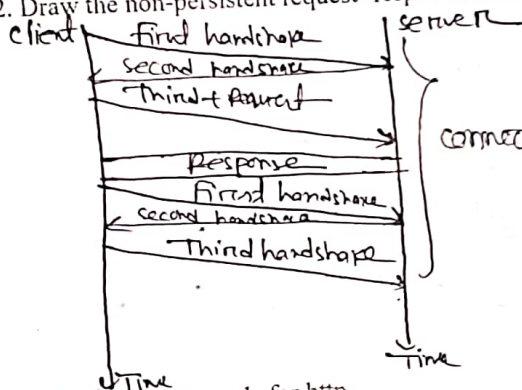 2. Draw the non-persistent request
client
server
first handshape
second handshake
Third + Request
connec
Response
first handshake
second handshake
Third handshape
Time
Time